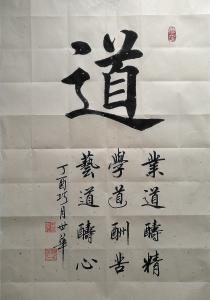 道
業道醻精
學道酬苦
藝道醻心
丁酉巧月世華